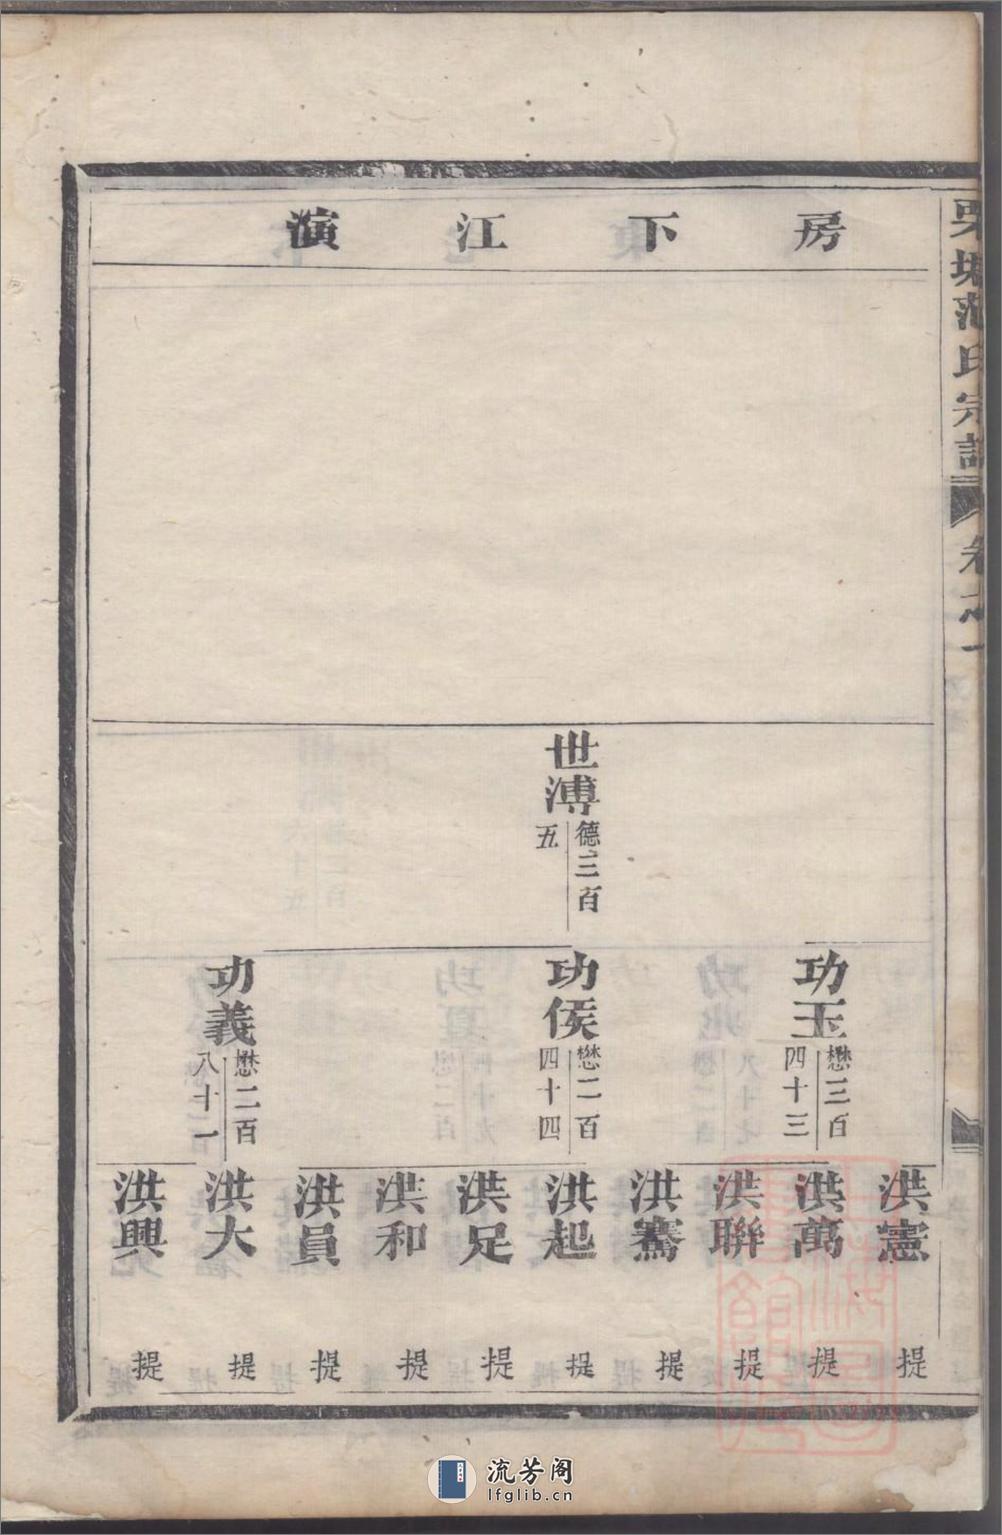 栗塘范氏宗譜
卷之一
房下江演
世溥
德三百
五
功玉
懋三百
四十三
功侯
懋二百
四十四
功義
懋二百
八十一
洪憲 提
洪萬 提
洪聯 提
洪騫 提
洪起 提
洪足 提
洪和 提
洪員 提
洪大 提
洪興 提
流芳阁
lfglib.cn